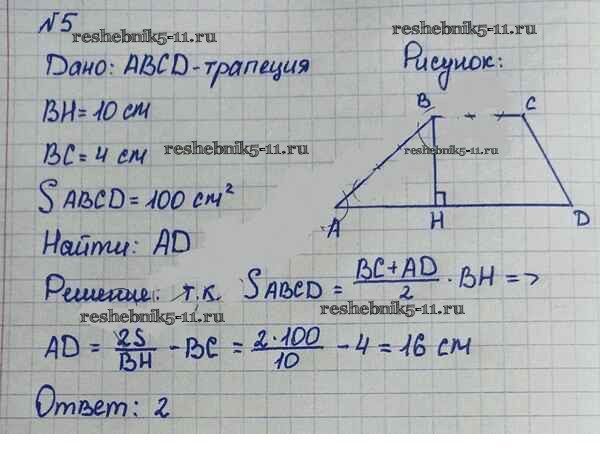 №5
reshebnik5-11.ru
reshebnik5-11.ru
Дано: ABCD-трапеция
Рисунок:
BH=10 см
B
C
BC=4 см
reshebnik5-11.ru
reshebnik5-11.ru
S ABCD=100 см²
A
H
D
Найти: AD
Решение: т.к. S ABCD = (BC+AD)/2 · BH =>
reshebnik5-11.ru
reshebnik5-11.ru
AD = 2S/BH - BC = 2·100/10 - 4 = 16 см
Ответ: 2